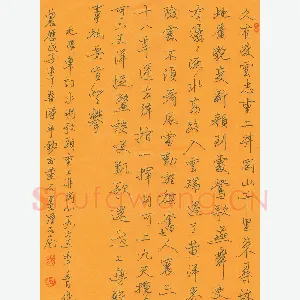 久有凌云志重上井冈山千里来寻故
地旧貌变新颜到处莺歌燕舞更
有潺潺流水高路入云端过了黄洋界
险处不须看风雷动旌旗奋是人寰三
十八年过去弹指一挥间可上九天揽月
可下五洋捉鳖谈笑凯歌还世上无难
事只要肯登攀
毛泽东词水调歌头重上井冈山
Shufawang.CN